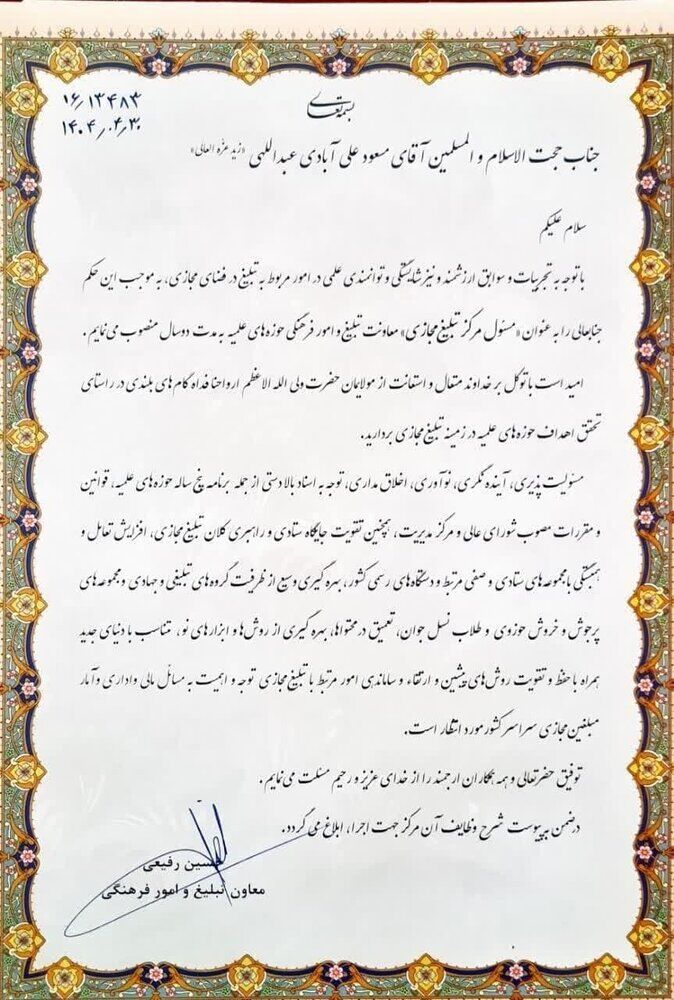 بسمه تعالی
۱۶/۱۳۴۸۳
۱۴۰۴/۰۴/۳۰
جناب حجت الاسلام و المسلمین آقای مسعود علی آبادی عبداللهی «زید عزه العالی»
سلام علیکم
با توجه به تجربیات و سوابق ارزشمند و نیز شایستگی و توانمندی علمی در امور مربوط به تبلیغ در فضای مجازی، به موجب این حکم
جنابعالی را به عنوان «مسئول مرکز تبلیغ مجازی» معاونت تبلیغ و امور فرهنگی حوزه های علمیه به مدت دو سال منصوب می نمایم.
امید است با توکل بر خداوند متعال و استعانت از مولایمان حضرت ولی الله الاعظم ارواحنا فداه گام های بلندی در راستای
تحقق اهداف حوزه های علمیه در زمینه تبلیغ مجازی بردارید.
مسئولیت پذیری، آینده نگری، نوآوری، اخلاق مداری، توجه به اسناد بالادستی از جمله برنامه پنج ساله حوزه های علمیه، قوانین
و مقررات مصوب شورای عالی و مرکز مدیریت، همچنین تقویت جایگاه ستادی و راهبری کلان تبلیغ مجازی، افزایش تعامل و
همبستگی با مجموعه های ستادی و صفی مرتبط و دستگاه های رسمی کشور، بهره گیری وسیع از ظرفیت گروه های تبلیغی و جهادی و مجموعه های
پرجوش و خروش حوزوی و طلاب نسل جوان، تعمیق در محتواها، بهره گیری از روش ها و ابزارهای نو، متناسب با دنیای جدید
همراه با حفظ و تقویت روش های پیشین و ارتقاء و ساماندهی امور مرتبط با تبلیغ مجازی توجه و اهمیت به مسائل مالی و اداری و آمار
مبلغین مجازی سراسر کشور مورد انتظار است.
توفیق حضرتعالی و همه همکاران ارجمند را از خدای عزیز و رحیم مسئلت می نمایم.
در ضمن به پیوست شرح وظایف آن مرکز جهت اجرا، ابلاغ می گردد.
حسین رفیعی
معاون تبلیغ و امور فرهنگی